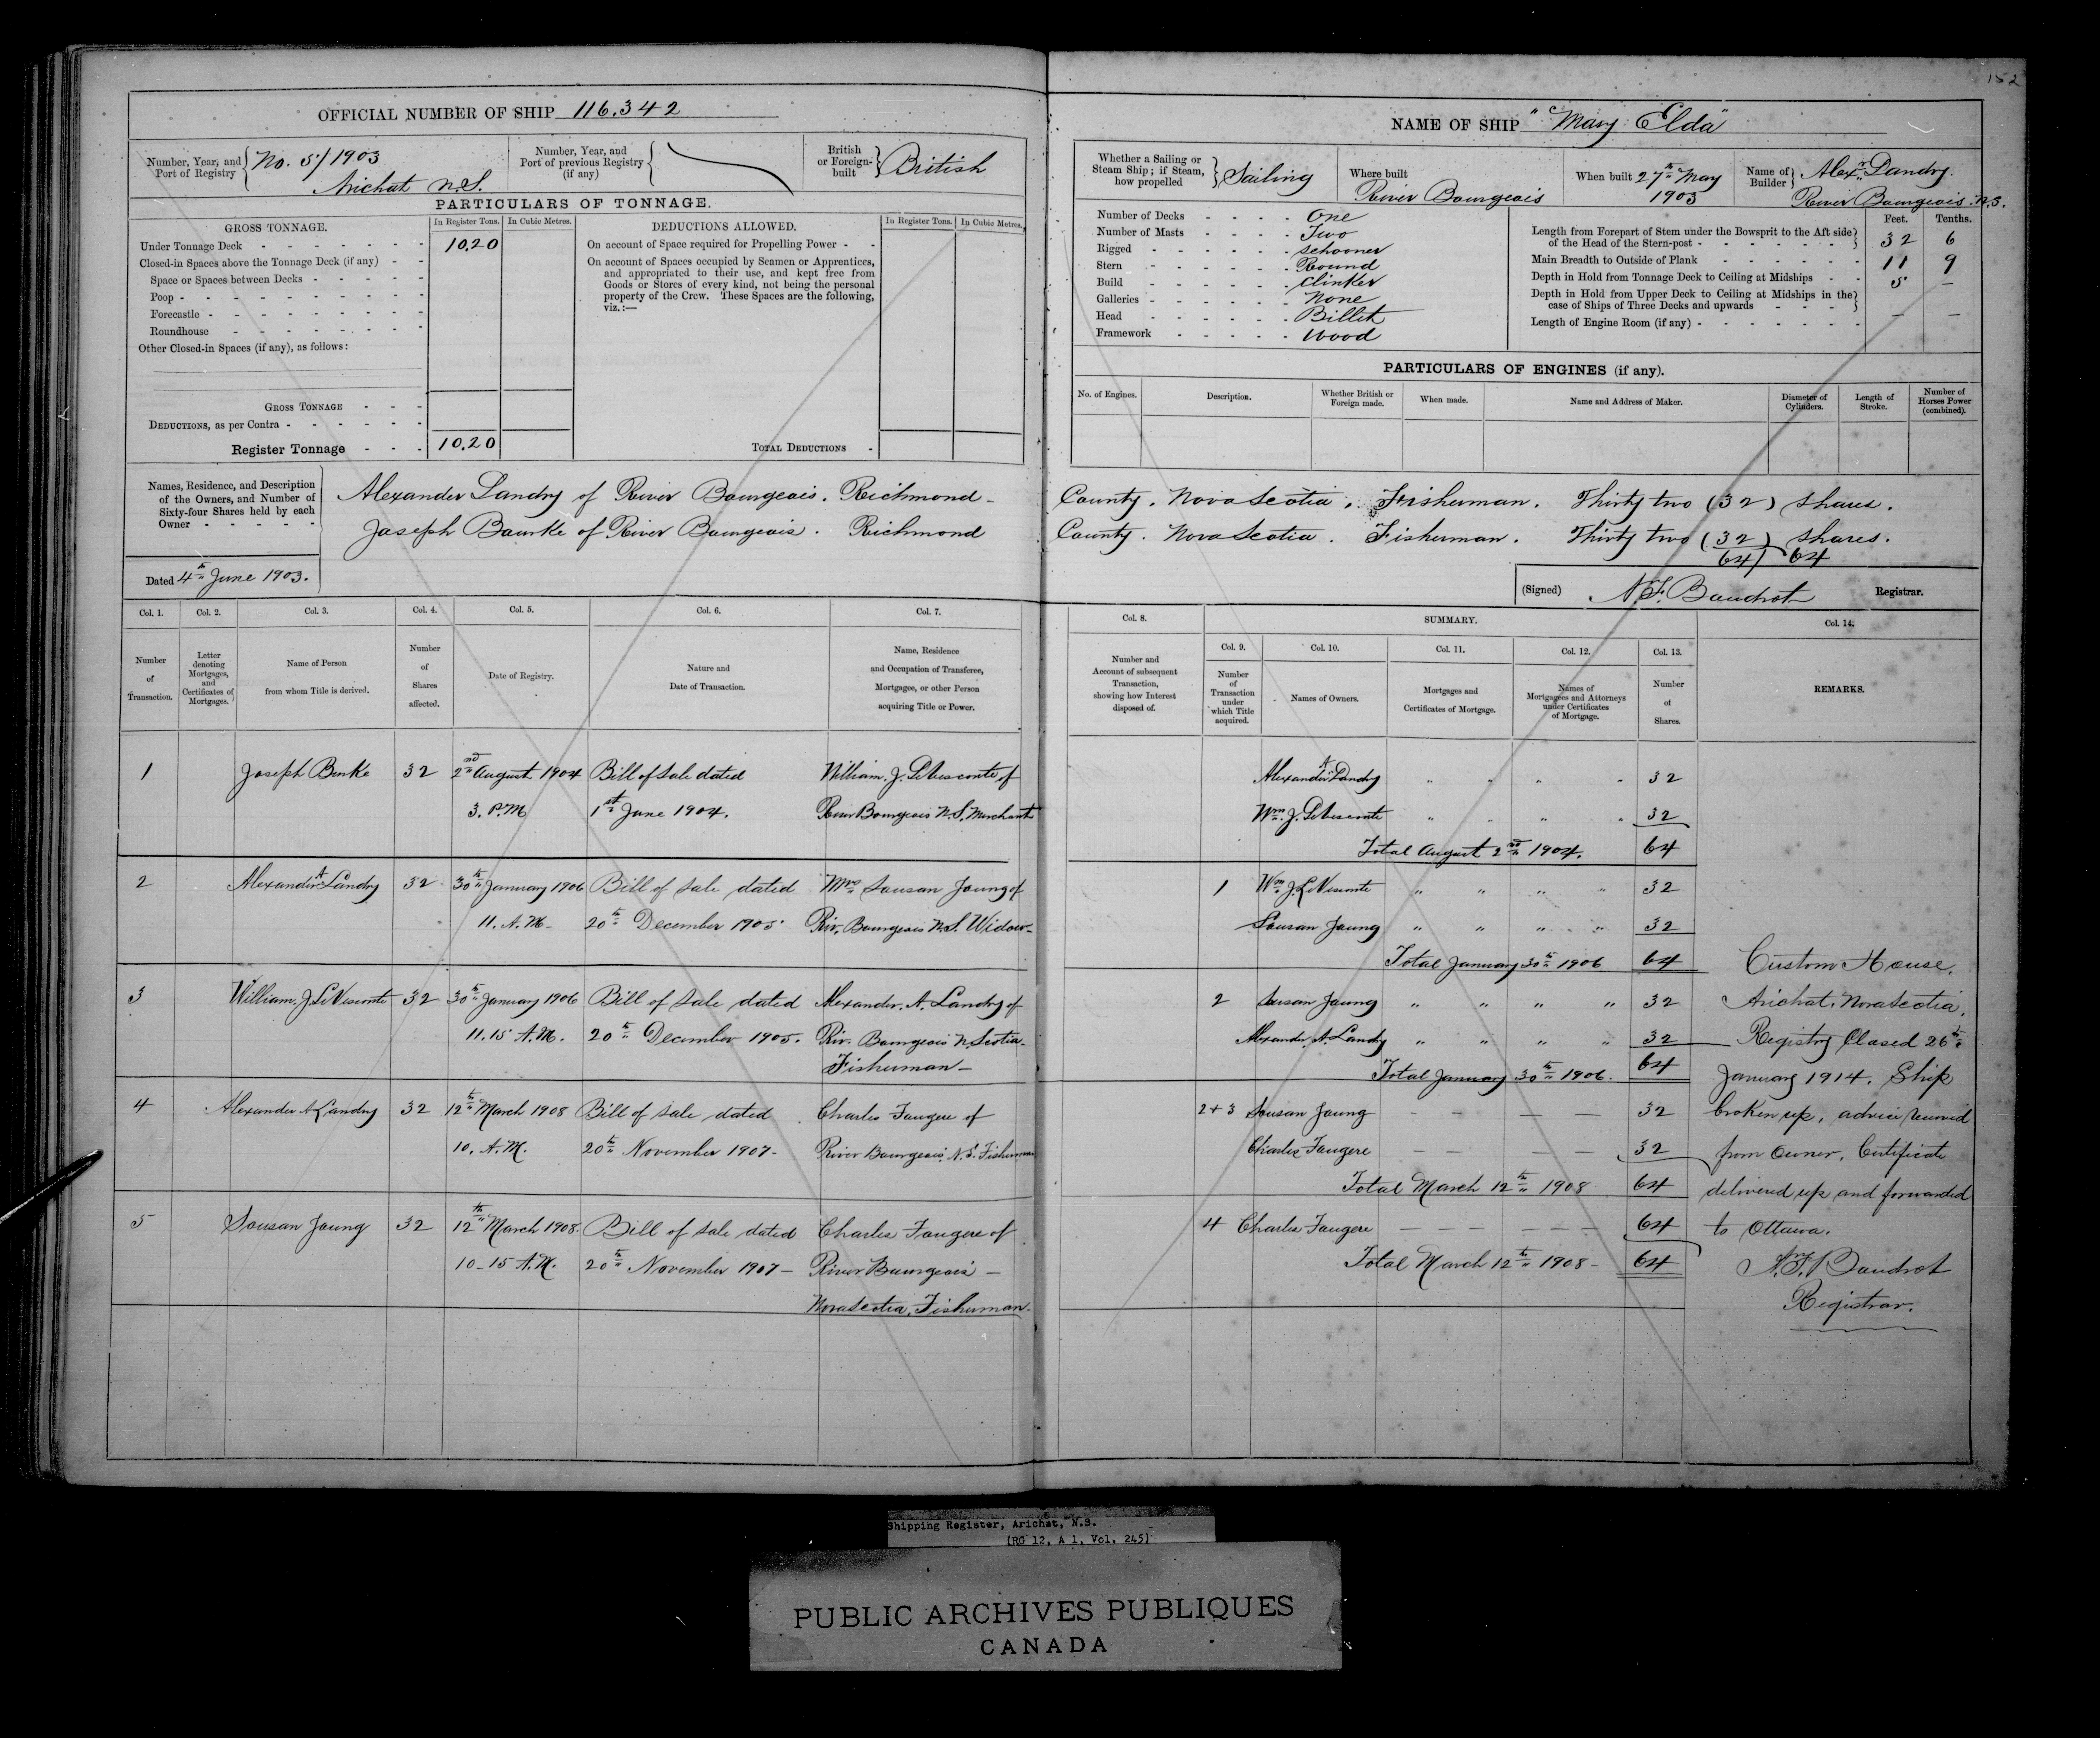 152
OFFICIAL NUMBER OF SHIP 116.342
Number, Year, and Port of Registry No. 5/1903 Arichat N.S.
Number, Year, and Port of previous Registry (if any)
British or Foreign-built British
PARTICULARS OF TONNAGE.
GROSS TONNAGE. In Register Tons. In Cubic Metres.
DEDUCTIONS ALLOWED. In Register Tons. In Cubic Metres.
Under Tonnage Deck - - - - - - - 10.20
Closed-in Spaces above the Tonnage Deck (if any) - -
Space or Spaces between Decks - - - - -
Poop - - - - - - - - -
Forecastle - - - - - - - -
Roundhouse - - - - - - -
Other Closed-in Spaces (if any), as follows:
On account of Space required for Propelling Power - -
On account of Spaces occupied by Seamen or Apprentices,
and appropriated to their use, and kept free from
Goods or Stores of every kind, not being the personal
property of the Crew. These Spaces are the following,
viz.:—
GROSS TONNAGE - - -
DEDUCTIONS, as per Contra - - - - - -
Register Tonnage - - - 10.20
TOTAL DEDUCTIONS -
NAME OF SHIP "Mary Elda"
Whether a Sailing or Steam Ship; if Steam, how propelled Sailing
Where built River Bourgeois
When built 27th May 1903
Name of Builder Alexr Landry. River Bourgeois N.S.
Number of Decks - - - - One
Number of Masts - - - - Two
Rigged - - - - - schooner
Stern - - - - - Round
Build - - - - - Clinker
Galleries - - - - - None
Head - - - - - Billet
Framework - - - - Wood
Feet. Tenths.
Length from Forepart of Stem under the Bowsprit to the Aft side
of the Head of the Stern-post - - - - - - 32 6
Main Breadth to Outside of Plank - - - - - 11 9
Depth in Hold from Tonnage Deck to Ceiling at Midships - - 5 –
Depth in Hold from Upper Deck to Ceiling at Midships in the
case of Ships of Three Decks and upwards - - - – –
Length of Engine Room (if any) - - - - - -
PARTICULARS OF ENGINES (if any).
No. of Engines. Description. Whether British or Foreign made. When made. Name and Address of Maker. Diameter of Cylinders. Length of Stroke. Number of Horses Power (combined).
Names, Residence, and Description
of the Owners, and Number of
Sixty-four Shares held by each
Owner - - - - -
Alexander Landry of River Bourgeois. Richmond - County. Nova Scotia. Fisherman. Thirty two (32) shares.
Joseph Bourke of River Bourgeois. Richmond County. Nova Scotia. Fisherman. Thirty two (32) shares.
64 64
Dated 4th June 1903.
(Signed) N.F. Boudrot Registrar.
Col. 1. Col. 2. Col. 3. Col. 4. Col. 5. Col. 6. Col. 7.
Number of Transaction.
Letter denoting Mortgages, and Certificates of Mortgages.
Name of Person from whom Title is derived.
Number of Shares affected.
Date of Registry.
Nature and Date of Transaction.
Name, Residence and Occupation of Transferee, Mortgagee, or other Person acquiring Title or Power.
Col. 8. SUMMARY. Col. 14.
Col. 9. Col. 10. Col. 11. Col. 12. Col. 13.
Number and Account of subsequent Transaction, showing how Interest disposed of.
Number of Transaction under which Title acquired.
Names of Owners.
Mortgages and Certificates of Mortgage.
Names of Mortgagees and Attorneys under Certificates of Mortgage.
Number of Shares.
REMARKS.
1 Joseph Burke 32 2nd August 1904 Bill of sale dated William. J. LeVisconte of
3. P.M 1st June 1904. River Bourgeois N.S. Merchant
2 Alexander A Landry 32 30th January 1906 Bill of sale dated Mrs Sousan Joung of
11. A.M- 20th December 1905 Riv. Bourgeois N.S. Widow-
3 William. J. LeVisconte 32 30th January 1906 Bill of sale dated Alexander. A. Landry of
11.15 A.M. 20th December 1905. Riv. Bourgeois N. Scotia-
Fisherman-
4 Alexander A Landry 32 12th March 1908 Bill of sale dated Charles Faugere of
10. A.M. 20th November 1907- River Bourgeois N.S. Fisherman
5 Sousan Joung 32 12th March 1908. Bill of sale dated Charles Faugere of
10-15 A.M. 20th November 1907- River Bourgeois -
Nova Scotia, Fisherman-
Alexander A Landry " " " " 32
Wm. J. LeVisconte " " " " 32
Total August 2nd 1904. 64
1 Wm J. LeVisconte " " " " 32
Sousan Joung " " " " 32
Total January 30th 1906 64
2 Sousan Joung " " " " 32
Alexander. A. Landry " " " " 32
Total January 30th 1906. 64
2+3 Sousan Joung – – – – 32
Charles Faugere – – – – 32
Total March 12th 1908 64
4 Charles Faugere – – – – 64
Total March 12th 1908- 64
Custom House.
Arichat. Nova Scotia.
Registry Closed 26th
January 1914. Ship
broken up, advice received
from Owner. Certificate
delivered up and forwarded
to Ottawa.
N.F. Boudrot
Registrar.
Shipping Register, Arichat, N.S.
(RG 12, A 1, Vol. 245)
PUBLIC ARCHIVES PUBLIQUES
CANADA